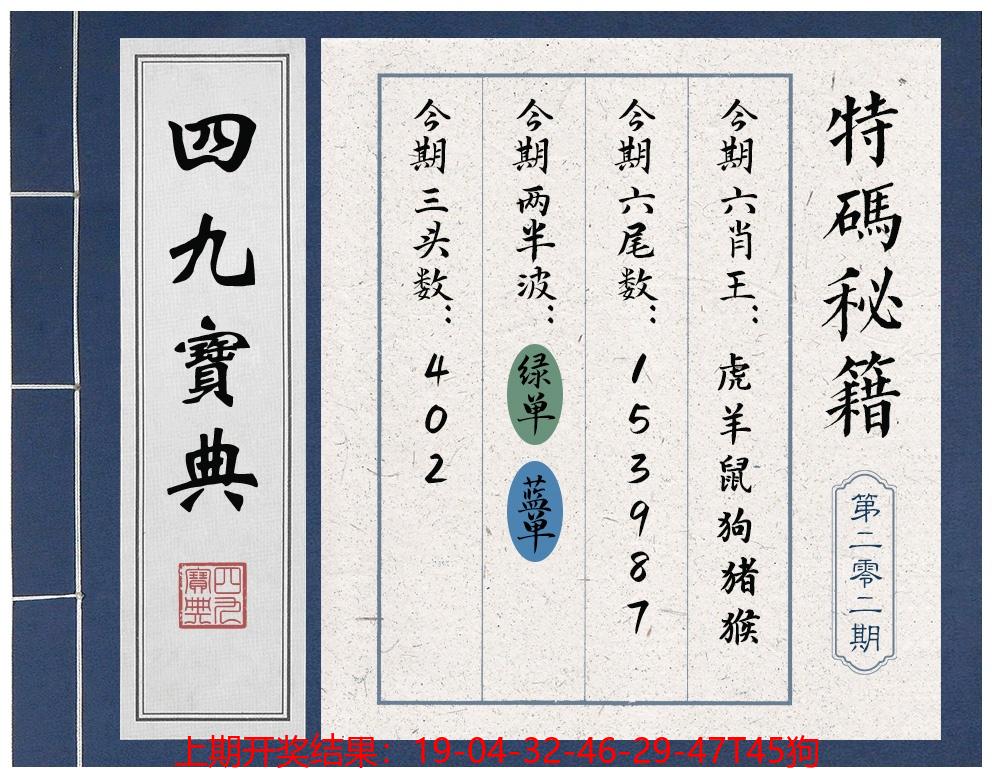 特碼秘籍
第二零二期
今期六肖王：虎羊鼠狗猪猴
今期六尾数：153987
今期两半波：绿单 蓝单
今期三头数：402
四九寶典
四九寶典
上期开奖结果：19-04-32-46-29-47T45狗